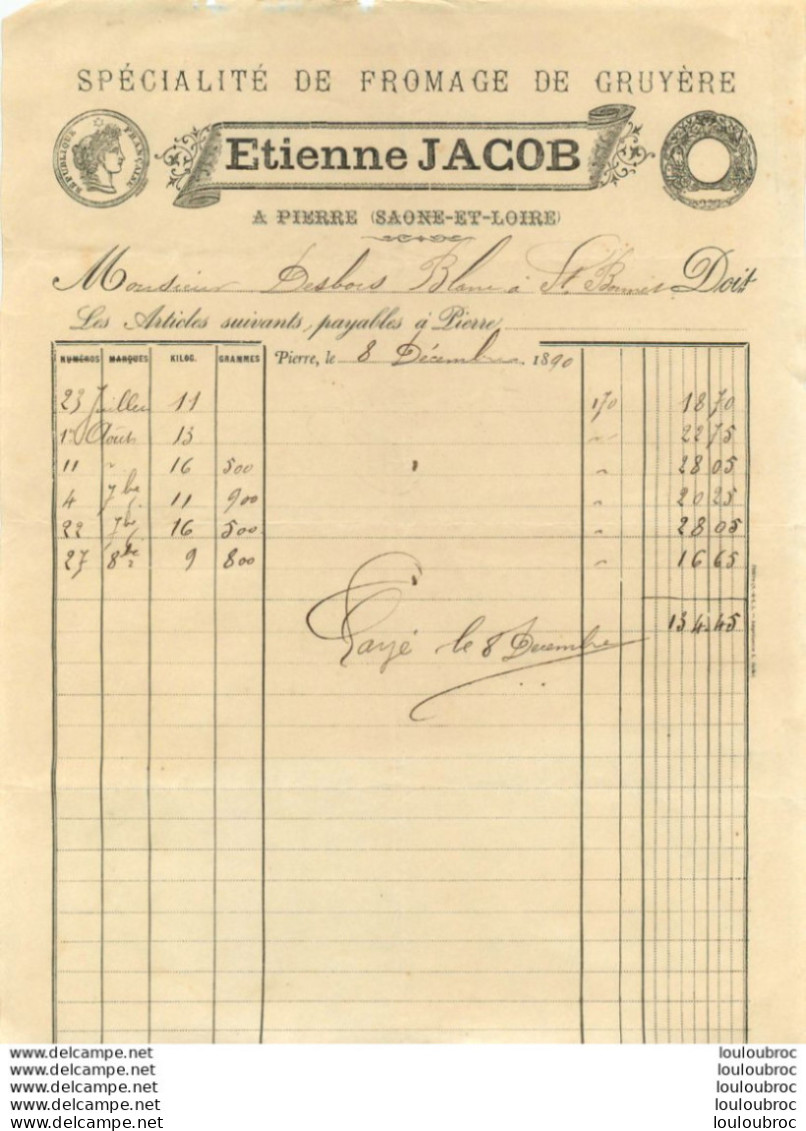 SPÉCIALITÉ DE FROMAGE DE GRUYÈRE
RÉPUBLIQUE FRANÇAISE
Etienne JACOB
A PIERRE (SAONE-ET-LOIRE)
Monsieur Desbois Blanc à St Bonnet Doit
Les Articles suivants, payables à Pierre
NUMÉROS MARQUES KILOG. GRAMMES Pierre, le 8 Décembre 1890
23 Juillet 11 170 18 70
1er Août 13 " 22 75
11 " 16 500 " 28 05
4 7bre 11 900 " 20 25
22 7bre 16 500 " 28 05
27 8bre 9 800 " 16 65
134.45
Payé le 8 Décembre
www.delcampe.net louloubroc
www.delcampe.net louloubroc
www.delcampe.net louloubroc
www.delcampe.net louloubroc
www.delcampe.net louloubroc